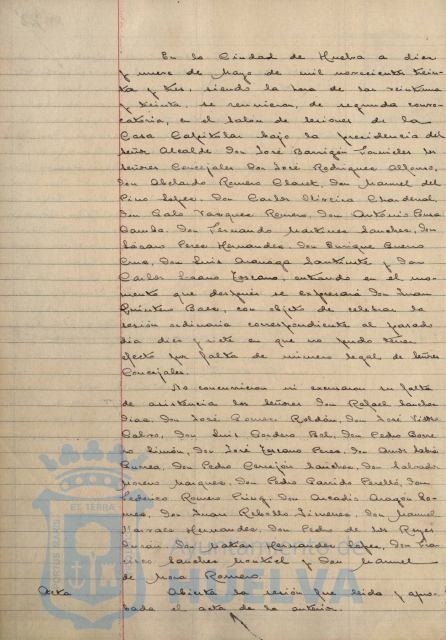 En la Ciudad de Huelva a diez
y nueve de Mayo de mil novecientos trein-
ta y tres, siendo la hora de las veintiuna
y treinta, se reunieron, de segunda convo-
catoria, en el salon de sesiones de la
Casa Capitular bajo la presidencia del
señor Alcalde Don José Barrigón los
señores Concejales Don José Rodriguez Alfonso,
Don Abelardo Romero Claret, Don Manuel del
Pino Lopez, Don Carlos Oliveira Chardenal,
Don Galo Vazquez Romero, Don Antonio Pousa
Don Fernando Martinez Sanchez, Don
Lázaro Perez Hernandez, Don Enrique Bueno
Cruz, Don Luis y Don
Carlos Lozano Toscano, entrando en el mo-
mento que después se expresará Don Juan
Quintero Baez, con objeto de celebrar la
sesión ordinaria correspondiente al pasado
dia diez y siete en que no pudo tener
efecto por falta de número legal de señores
Concejales.
No concurrieron ni excusaron su falta
de asistencia los señores Don Rafael Sanchez
Diaz, Don José Gomez Roldán, Don José
Calvo, Don Luis Cordero Bel, Don Pedro Borre-
ro Limón, Don José Toscano Perez, Don
Don Pedro Cerrejón Sanchez, Don Salvador
Moreno Marquez, Don Pedro Garrido Perelló, Don
Federico Romero Don Arcadio Aragón
Don Juan Rebollo Jimenez, Don Manuel
Hernandez, Don Pedro de los Reyes
Durán, Don Matias Hernandez Lopez, Don Fran-
cisco Sanchez y Don Manuel
de Mora Romero.
Acta Abierta la sesión fué leida y apro-
bada el acta de la anterior.
PORTUS MARIS ET TERRAE
Ayuntamiento de
HUELVA